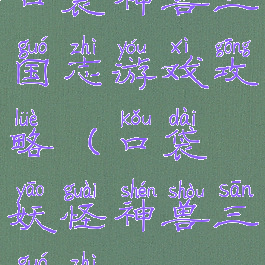 袋神兽三
guó zhì yóu xì gōng
国志游戏攻
lüè kǒu dài
略（口袋
yāo guài shén shòu sān
妖怪神兽三
guó zhì